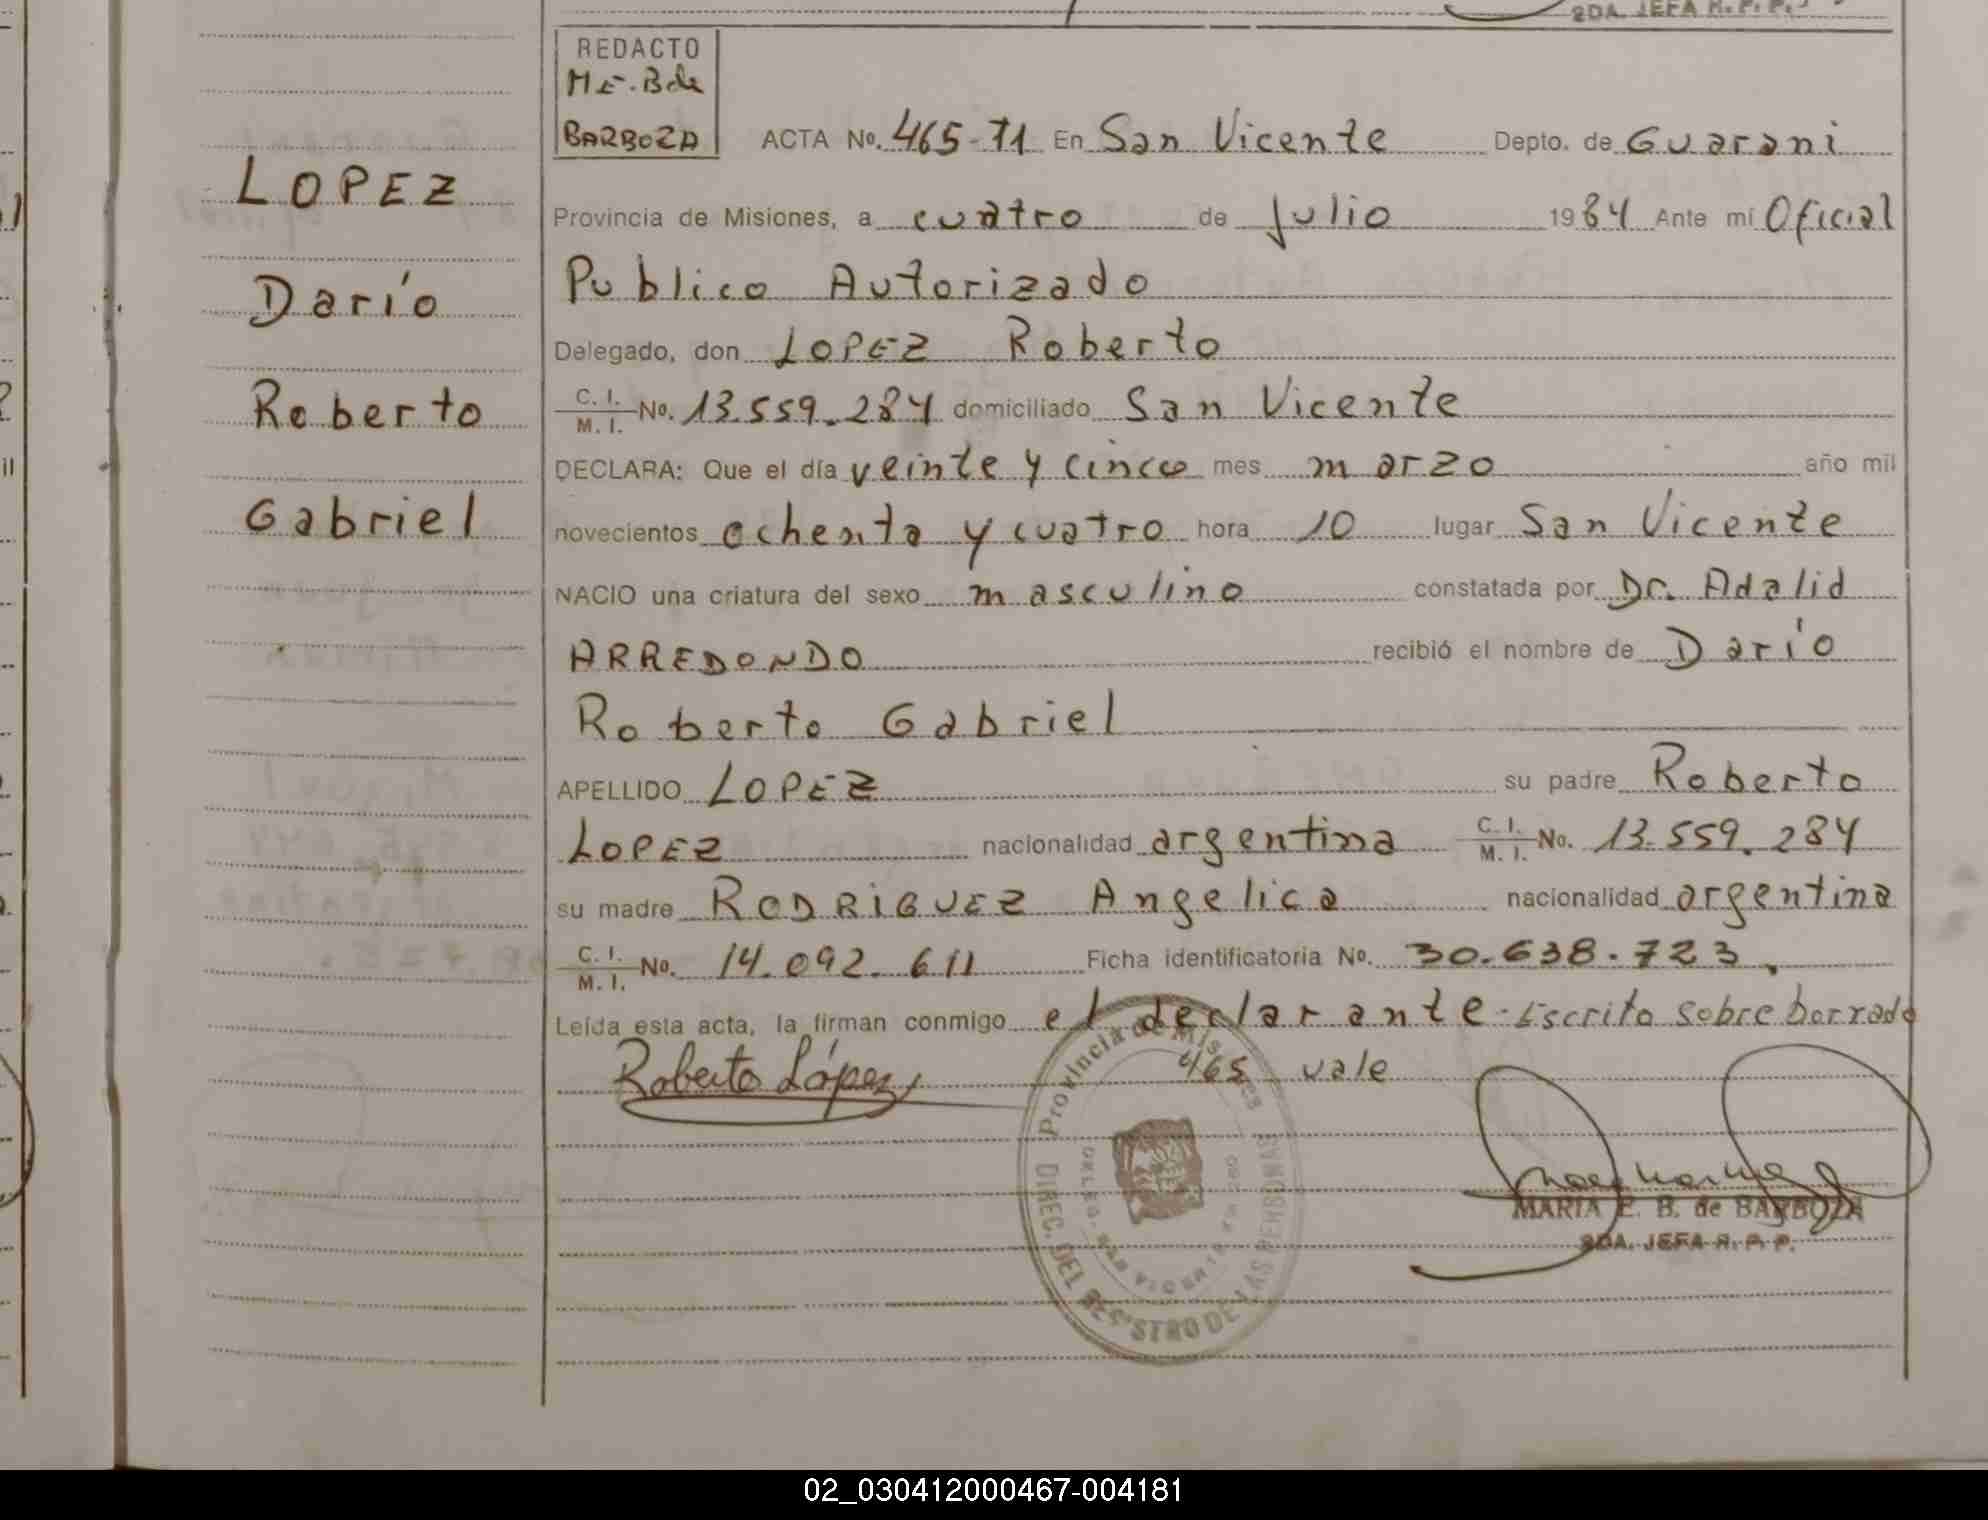 2DA. JEFA R. P. P.
REDACTO
ME. B de
BARBOZA
ACTA No. 465-71 En San Vicente Depto. de Guarani
LOPEZ
Darío
Roberto
Gabriel
Provincia de Misiones, a cuatro de julio 1984 Ante mí Oficial
Publico Autorizado
Delegado, don LOPEZ Roberto
C. I. / M. I. No. 13.559.284 domiciliado San Vicente
DECLARA: Que el día veinte y cinco mes marzo año mil
novecientos ochenta y cuatro hora 10 lugar San Vicente
NACIO una criatura del sexo masculino constatada por Dr. Adalid
ARREDONDO recibió el nombre de Darío
Roberto Gabriel
APELLIDO LOPEZ su padre Roberto
LOPEZ nacionalidad argentina C. I. / M. I. No. 13.559.284
su madre RODRIGUEZ Angelica nacionalidad argentina
C. I. / M. I. No. 14.092.611 Ficha identificatoria No. 30.638.723.
Leída esta acta, la firman conmigo el declarante - Escrito sobre borrado
465 vale
Roberto López
Provincia de Misiones
DIREC. DEL REGISTRO DE LAS PERSONAS
MARIA E. B. de BARBOZA
2DA. JEFA R. P. P.
02_030412000467-004181